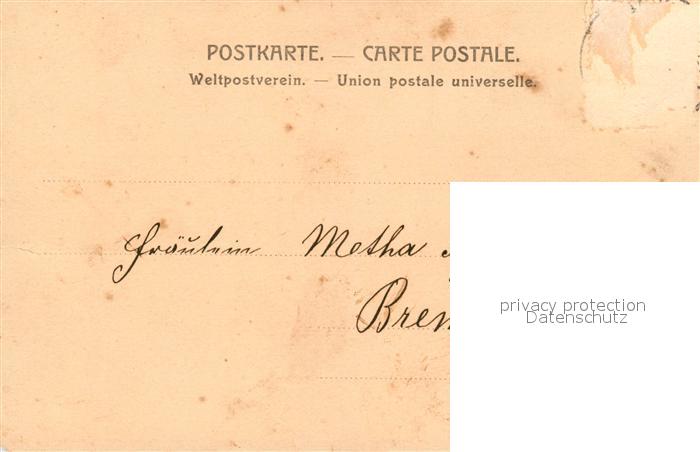 POSTKARTE. — CARTE POSTALE.
Weltpostverein. — Union postale universelle.
Fräulein Metha
Brem
privacy protection
Datenschutz